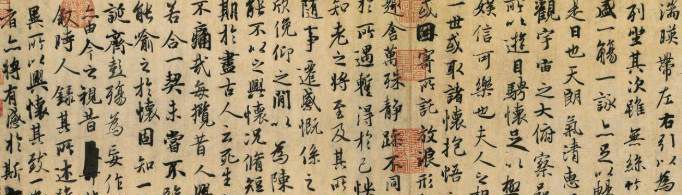 湍暎帶左右引以為
列坐其次雖無絲
盛一觴一詠亦足以暢
是日也天朗氣清惠
觀宇宙之大俯察
所以遊目騁懷足以極
娛信可樂也夫人之相
一世或取諸懷抱悟
或因寄所託放浪形
趣舍萬殊靜躁不同
於所遇蹔得於己快
知老之將至及其所
隨事遷感慨係之
欣俛仰之閒以為陳
能不以之興懷況脩短
期於盡古人云死生
不痛哉每攬昔人興
若合一契未嘗不臨
能喻之於懷固知一
誕齊彭殤為妄作
由今之視昔
敘時人錄其所述
異所以興懷其致
者亦將有感於斯